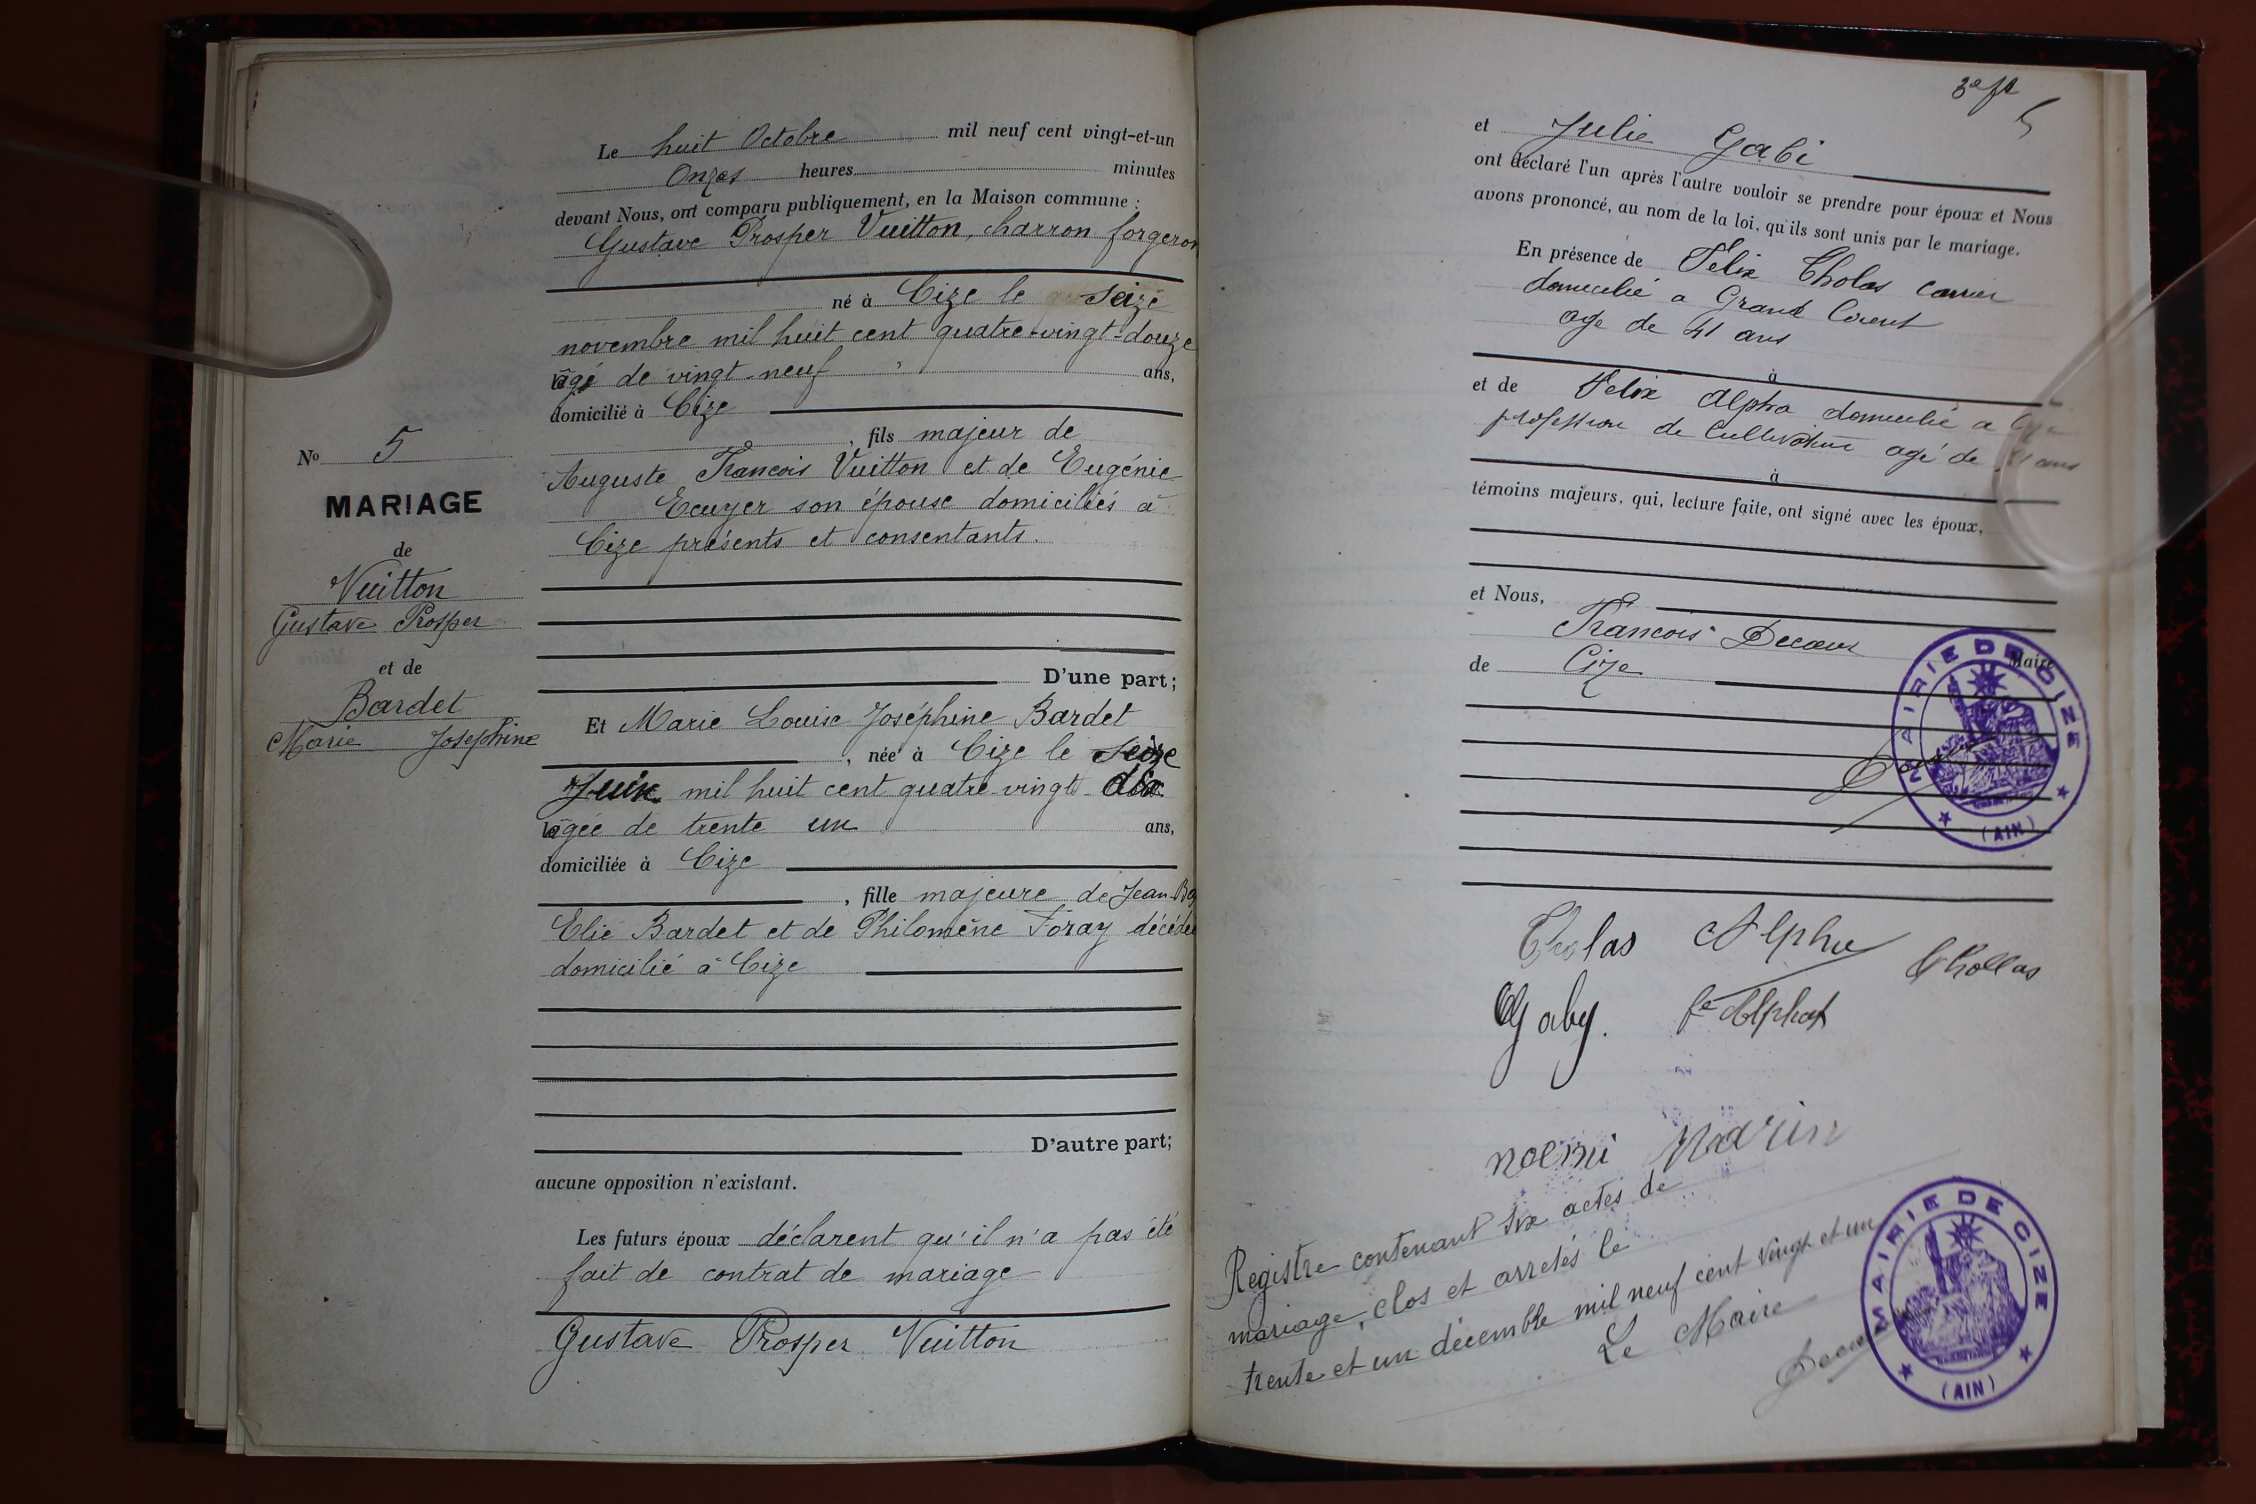 Le huit Octobre mil neuf cent vingt-et-un
Onzes heures minutes
devant Nous, ont comparu publiquement, en la Maison commune :
Gustave Prosper Vuitton, charron forgeron
né à Cize le seize
novembre mil huit cent quatre-vingt-douze
âgé de vingt-neuf ans,
domicilié à Cize
, fils majeur de
Auguste Francois Vuitton et de Eugénie
Ecuyer son épouse domiciliés à
Cize présents et consentants.
D'une part;
Et Marie Louise Joséphine Bardet
, née à Cize le Seize
Juin mil huit cent quatre-vingt dix
âgée de trente un ans,
domiciliée à Cize
, fille majeure de Jean
Elie Bardet et de Philomène Foray décédée
domicilié à Cize
D'autre part;
aucune opposition n'existant.
Les futurs époux déclarent qu'il n'a pas été
fait de contrat de mariage
Gustave Prosper Vuitton
No 5
MARIAGE
de
Vuitton
Gustave Prosper
et de
Bardet
Marie Josephine
5
et Julie Gabi
ont déclaré l'un après l'autre vouloir se prendre pour époux et Nous
avons prononcé, au nom de la loi, qu'ils sont unis par le mariage.
En présence de Félix Cholas
domicilié a Grand Corent
age de 41 ans
à
et de Felix Alpha domicilié a
profession de Cultivateur agé de ans
à
témoins majeurs, qui, lecture faite, ont signé avec les époux,
et Nous,
Francois Decoeur Maire
de Cize
MAIRIE DE CIZE
(AIN)
Cholas Alphe Chollas
Gaby. fe Alphat
noemi Marin
Registre contenant six actes de
mariage, clos et arretés le
trente et un décembre mil neuf cent vingt et un
Le Maire
MAIRIE DE CIZE
(AIN)